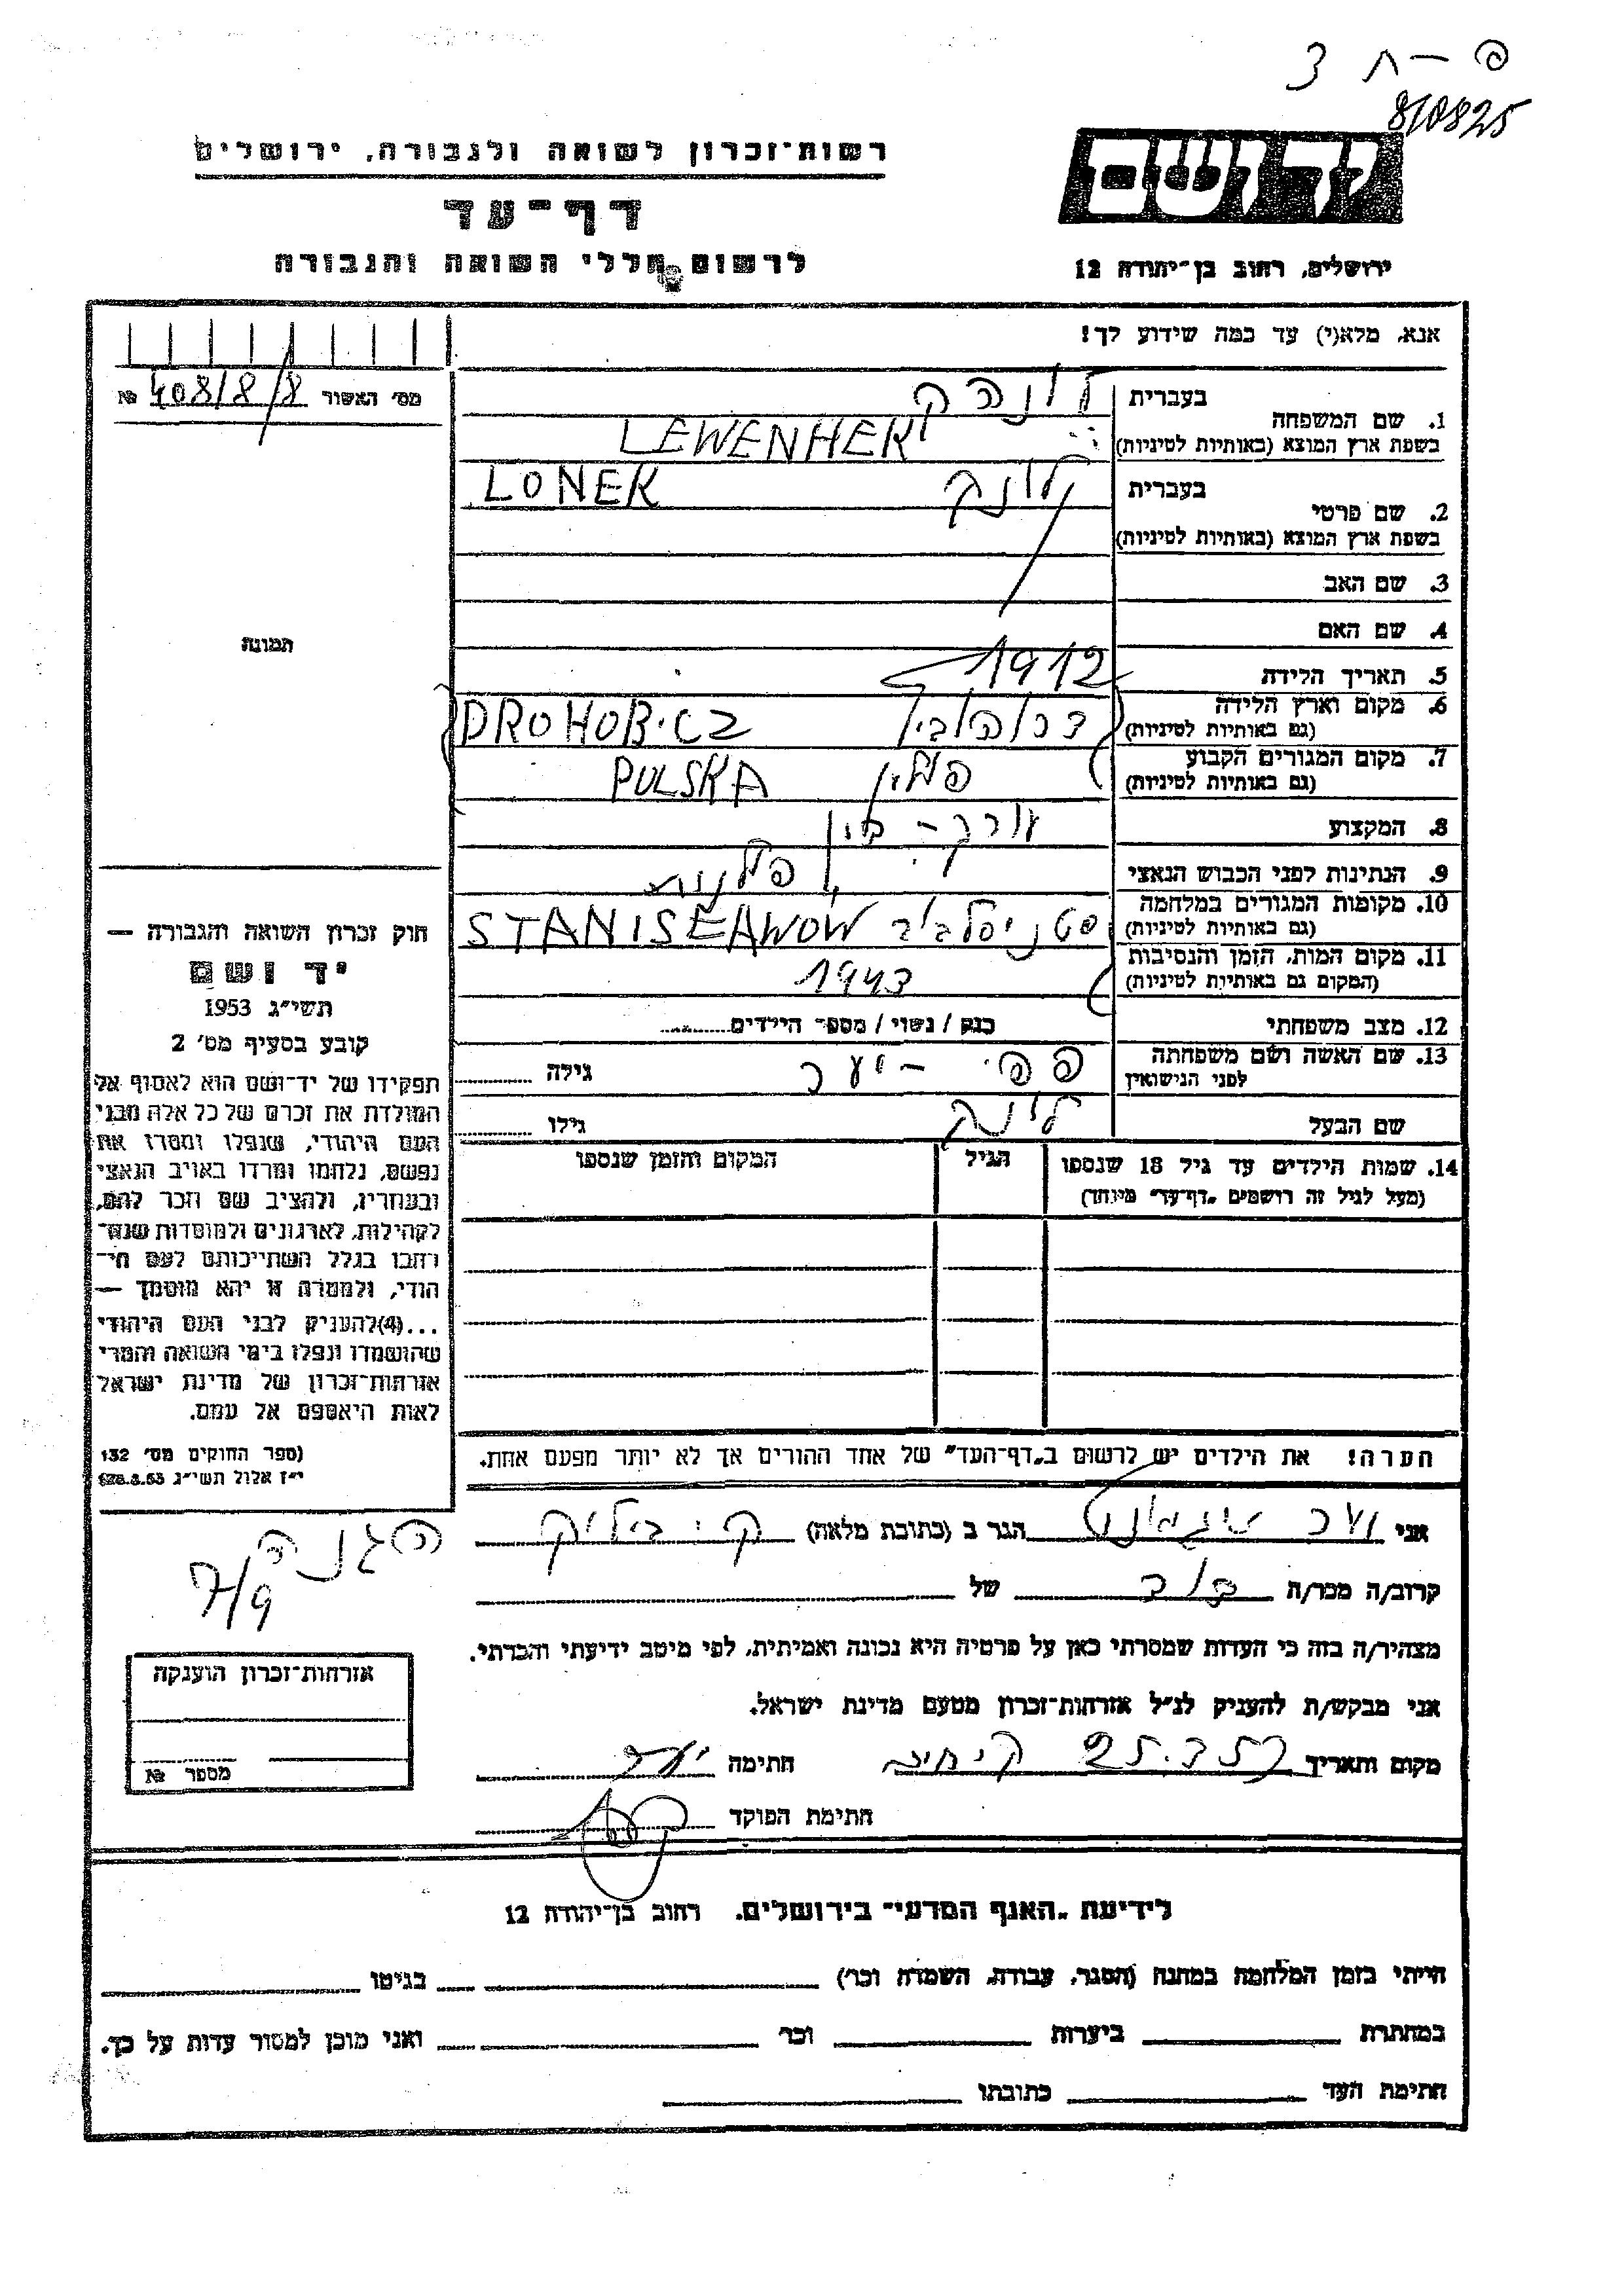 810825
רשות־זכרון לשואה ולגבורה, ירושלים
דף־עד
לרשום חללי השואה והגבורה
ידושם
ירושלים, רחוב בן־יהודה 12
אנא, מלא(י) עד כמה שידוע לך!
מס׳ האשור 408/8/8 №
1. שם המשפחה
בעברית
בשפת ארץ המוצא (באותיות לטיניות) LEWENHEK
2. שם פרטי
בעברית לונק LONEK
בשפת ארץ המוצא (באותיות לטיניות)
3. שם האב
4. שם האם
5. תאריך הלידה 1912
6. מקום וארץ הלידה
(גם באותיות לטיניות) DROHOBICZ
7. מקום המגורים הקבוע
(גם באותיות לטיניות) פולין PULSKA
8. המקצוע עורך־דין
9. הנתינות לפני הכבוש הנאצי פולנית
10. מקומות המגורים במלחמה
(גם באותיות לטיניות) סטניסלביב STANISEAWOW
11. מקום המות, הזמן והנסיבות
(המקום גם באותיות לטיניות) 1943
12. מצב משפחתי רווק / נשוי / מספר הילדים
13. שם האשה ושם משפחתה
לפני הנישואין פפי - יער גילה
שם הבעל לונק גילו
14. שמות הילדים עד גיל 18 שנספו
(מעל לגיל זה רושמים „דף־עד״ מיוחד)
הגיל
המקום והזמן שנספו
הערה! את הילדים יש לרשום ב„דף־העד״ של אחד ההורים אך לא יותר מפעם אחת.
תמונה
חוק זכרון השואה והגבורה —
יד ושם
תשי״ג 1953
קובע בסעיף מס׳ 2
תפקידו של יד־ושם הוא לאסוף אל
המולדת את זכרם של כל אלה מבני
העם היהודי, שנפלו ומסרו את
נפשם, נלחמו ומרדו באויב הנאצי
ובעוזריו, ולהציב שם וזכר להם,
לקהילות, לארגונים ולמוסדות שנח־
רבו בגלל השתייכותם לעם הי־
הודי, ולמטרה זו יהא מוסמך —
...(4)להעניק לבני העם היהודי
שהושמדו ונפלו בימי השואה והמרי
אזרחות־זכרון של מדינת ישראל
לאות היאספם אל עמם.
(ספר החוקים מס׳ 132
י״ז אלול תשי״ג 28.8.53)
אני יער זיגמונט הגר ב (כתובת מלאה) ק. ביליק
ההגנה 7/9
קרוב/ה מכר/ה קרוב של
מצהיר/ה בזה כי העדות שמסרתי כאן על פרטיה היא נכונה ואמיתית, לפי מיטב ידיעתי והכרתי.
אני מבקש/ת להעניק לנ״ל אזרחות־זכרון מטעם מדינת ישראל.
מקום ותאריך 25.3.57 חתימה יער
חתימת הפוקד
אזרחות־זכרון הוענקה
מספר №
לידיעת „האגף המדעי״ בירושלים, רחוב בן־יהודה 12
הייתי בזמן המלחמה במחנה (הסגר, עבודה, השמדה וכו׳) בגיטו
במחתרת ביערות וכו׳ ואני מוכן למסור עדות על כך.
חתימת העד כתובתו